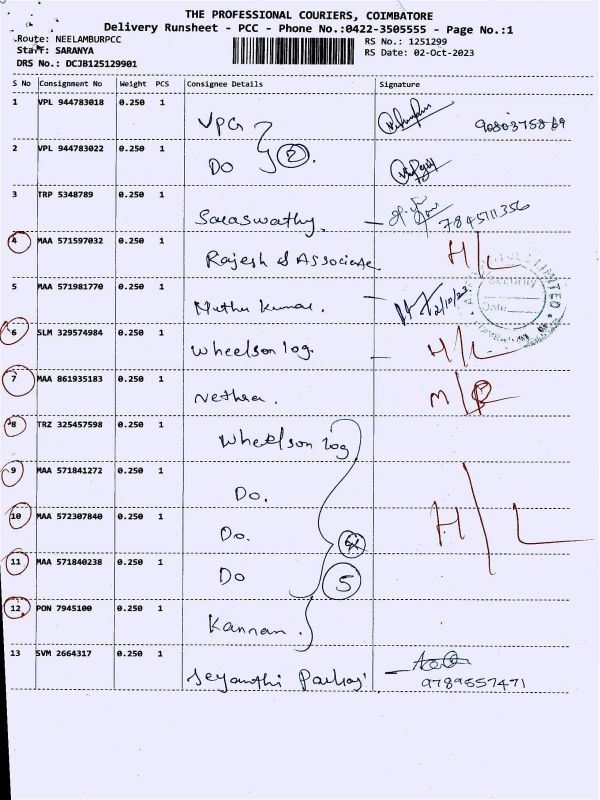 THE PROFESSIONAL COURIERS, COIMBATORE
Delivery Runsheet - PCC - Phone No.:0422-3505555 - Page No.:1
Route: NEELAMBURPCC
RS No.: 1251299
Staff: SARANYA
RS Date: 02-Oct-2023
DRS No.: DCJB125129901
S No Consignment No Weight PCS Consignee Details Signature
1 VPL 944783018 0.250 1 VPG
2 VPL 944783022 0.250 1 Do 2
3 TRP 5348789 0.250 1 Saraswathy. 7845111356
4 MAA 571597032 0.250 1 Rajesh & Associate H/L
5 MAA 571981770 0.250 1 Muthu Kumar. 2/10/23
6 SLM 329574984 0.250 1 Wheelson log. H/L
7 MAA 861935183 0.250 1 Nethra. M/
8 TRZ 325457598 0.250 1 Wheelson log
9 MAA 571841272 0.250 1 Do.
10 MAA 572307840 0.250 1 Do. H/L
11 MAA 571840238 0.250 1 Do 5
12 PON 7945100 0.250 1 Kannan.
13 SVM 2664317 0.250 1
9789557471
LIMITED
Date